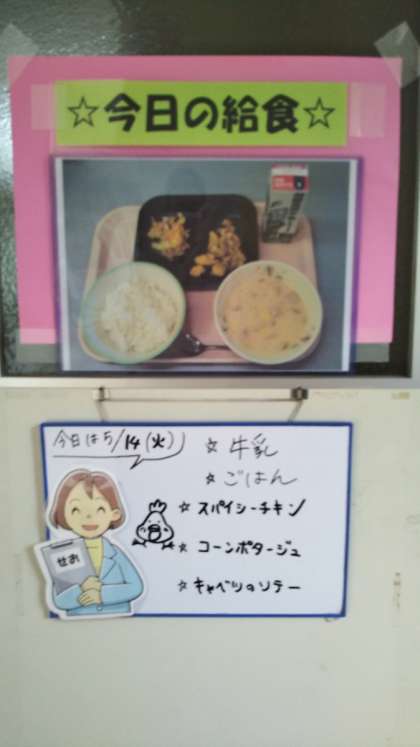 ☆今日の給食☆
今日は5/14(火)
☆ 牛乳
☆ ごはん
☆ スパイシーチキン
☆ コーンポタージュ
☆ キャベツのソテー
せお